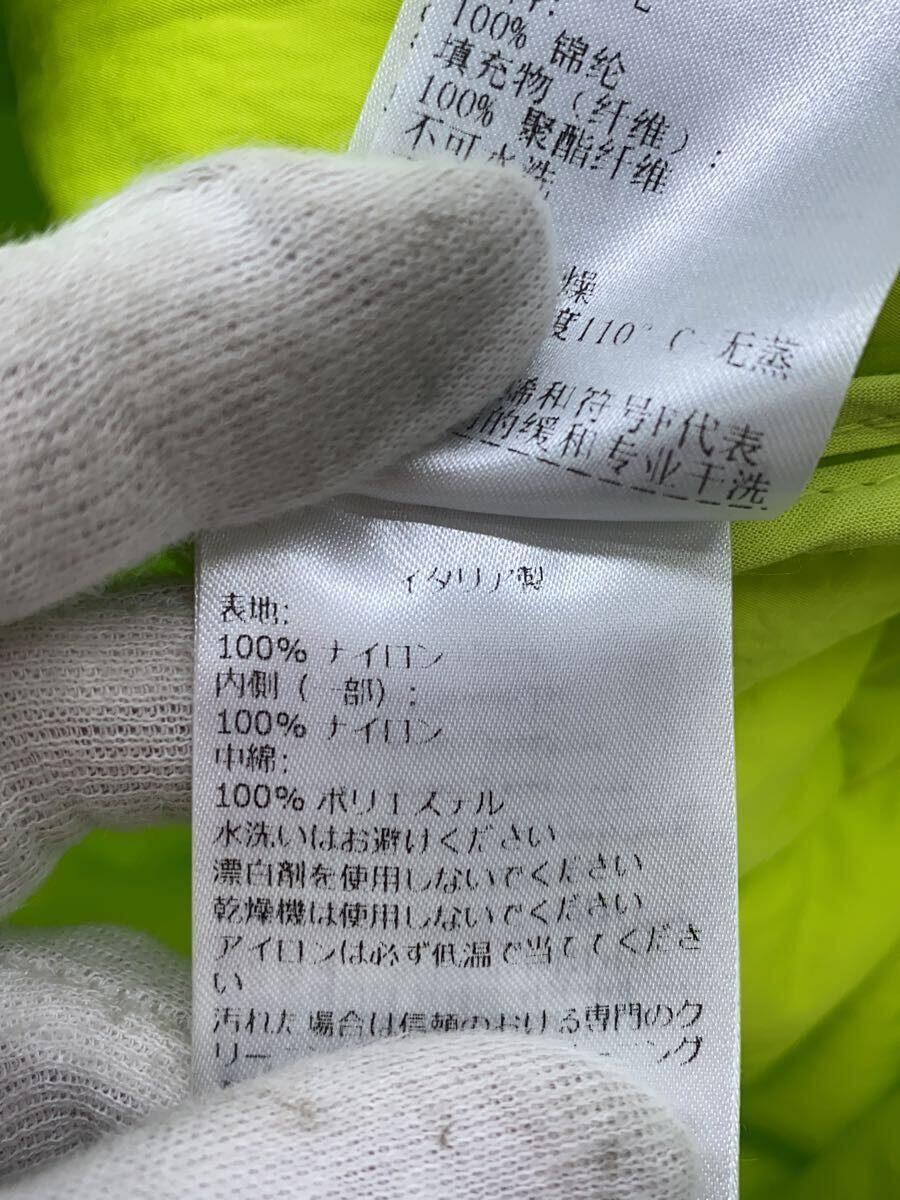 100% 锦纶
填充物（纤维）:
100% 聚酯纤维
不可水洗
燥
度110°C 无蒸
烯和符号F代表
的缓和专业干洗
イタリア製
表地:
100% ナイロン
内側（一部）:
100% ナイロン
中綿:
100% ポリエステル
水洗いはお避けください
漂白剤を使用しないでください
乾燥機は使用しないでください
アイロンは必ず低温で当ててくださ
い
汚れた場合は信頼のおける専門のク
リー ング